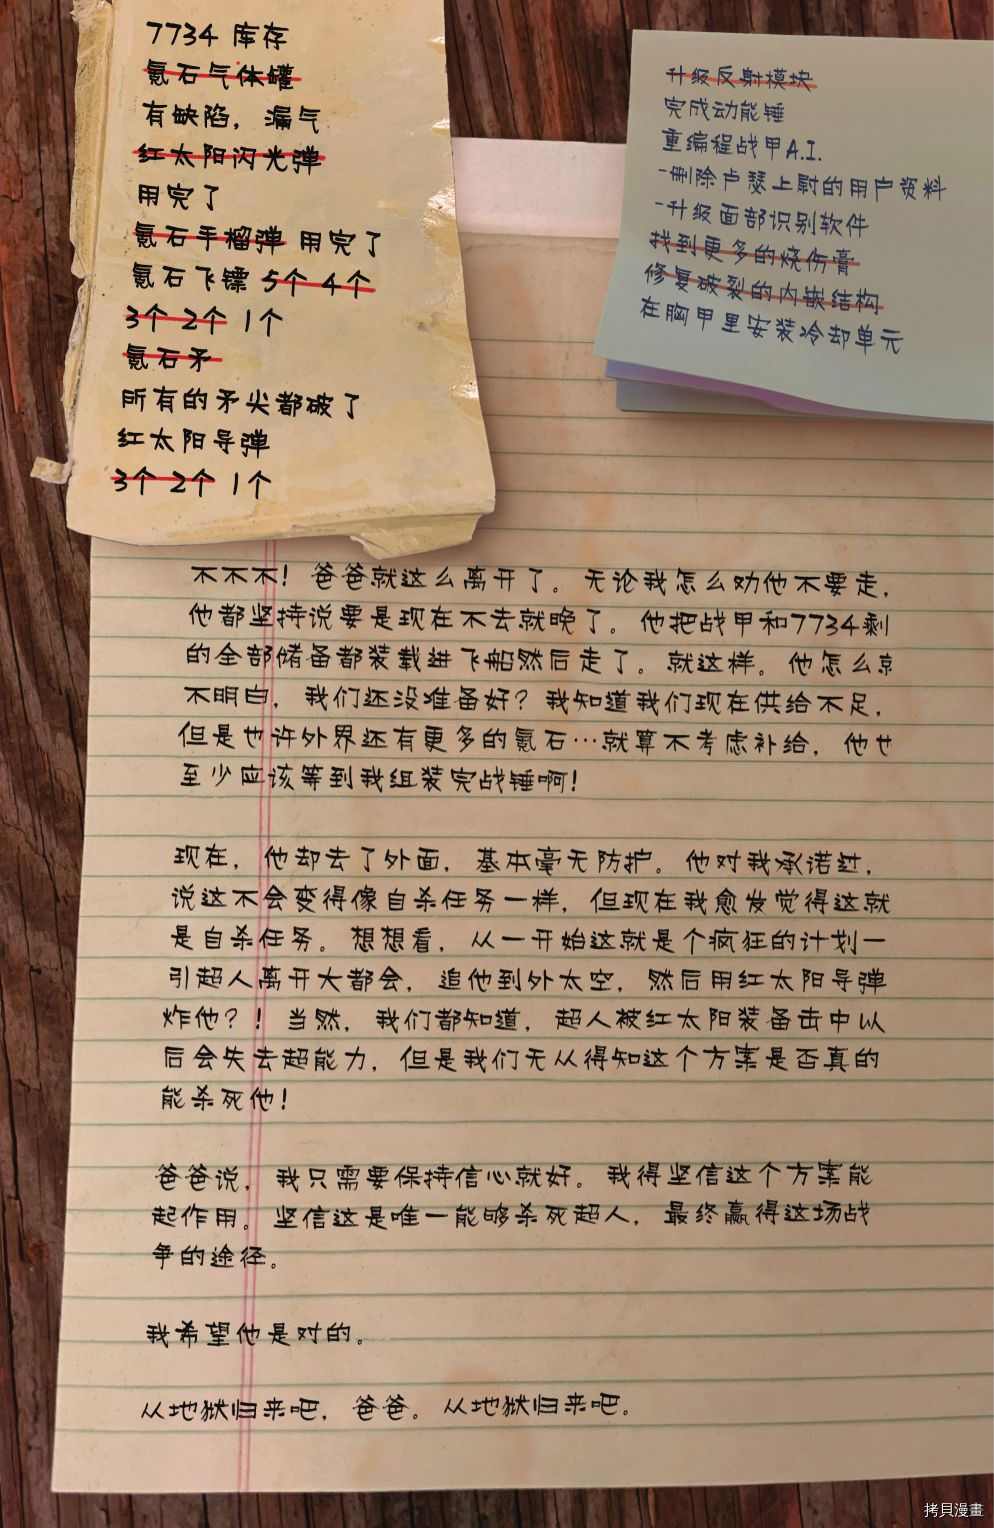 7734 库存
氪石气体罐
有缺陷，漏气
红太阳闪光弹
用完了
氪石手榴弹 用完了
氪石飞镖 5个 4个
3个 2个 1个
氪石矛
所有的矛尖都破了
红太阳导弹
3个 2个 1个
升级反射模块
完成动能锤
重编程战甲A.I.
-删除卢瑟上尉的用户资料
-升级面部识别软件
找到更多的烧伤膏
修复破裂的内嵌结构
在胸甲里安装冷却单元
不不不！爸爸就这么离开了。无论我怎么劝他不要走，
他都坚持说要是现在不去就晚了。他把战甲和7734剩
的全部储备都装载进飞船然后走了。就这样。他怎么
不明白，我们还没准备好？我知道我们现在供给不足，
但是也许外界还有更多的氪石…就算不考虑补给，他
至少应该等到我组装完战锤啊！
现在，他却去了外面，基本毫无防护。他对我承诺过，
说这不会变得像自杀任务一样，但现在我愈发觉得这就
是自杀任务。想想看，从一开始这就是个疯狂的计划—
引超人离开大都会，追他到外太空，然后用红太阳导弹
炸他？！当然，我们都知道，超人被红太阳装备击中以
后会失去超能力，但是我们无从得知这个方案是否真的
能杀死他！
爸爸说，我只需要保持信心就好。我得坚信这个方案能
起作用。坚信这是唯一能够杀死超人，最终赢得这场战
争的途径。
我希望他是对的。
从地狱归来吧，爸爸。从地狱归来吧。
拷贝漫畫